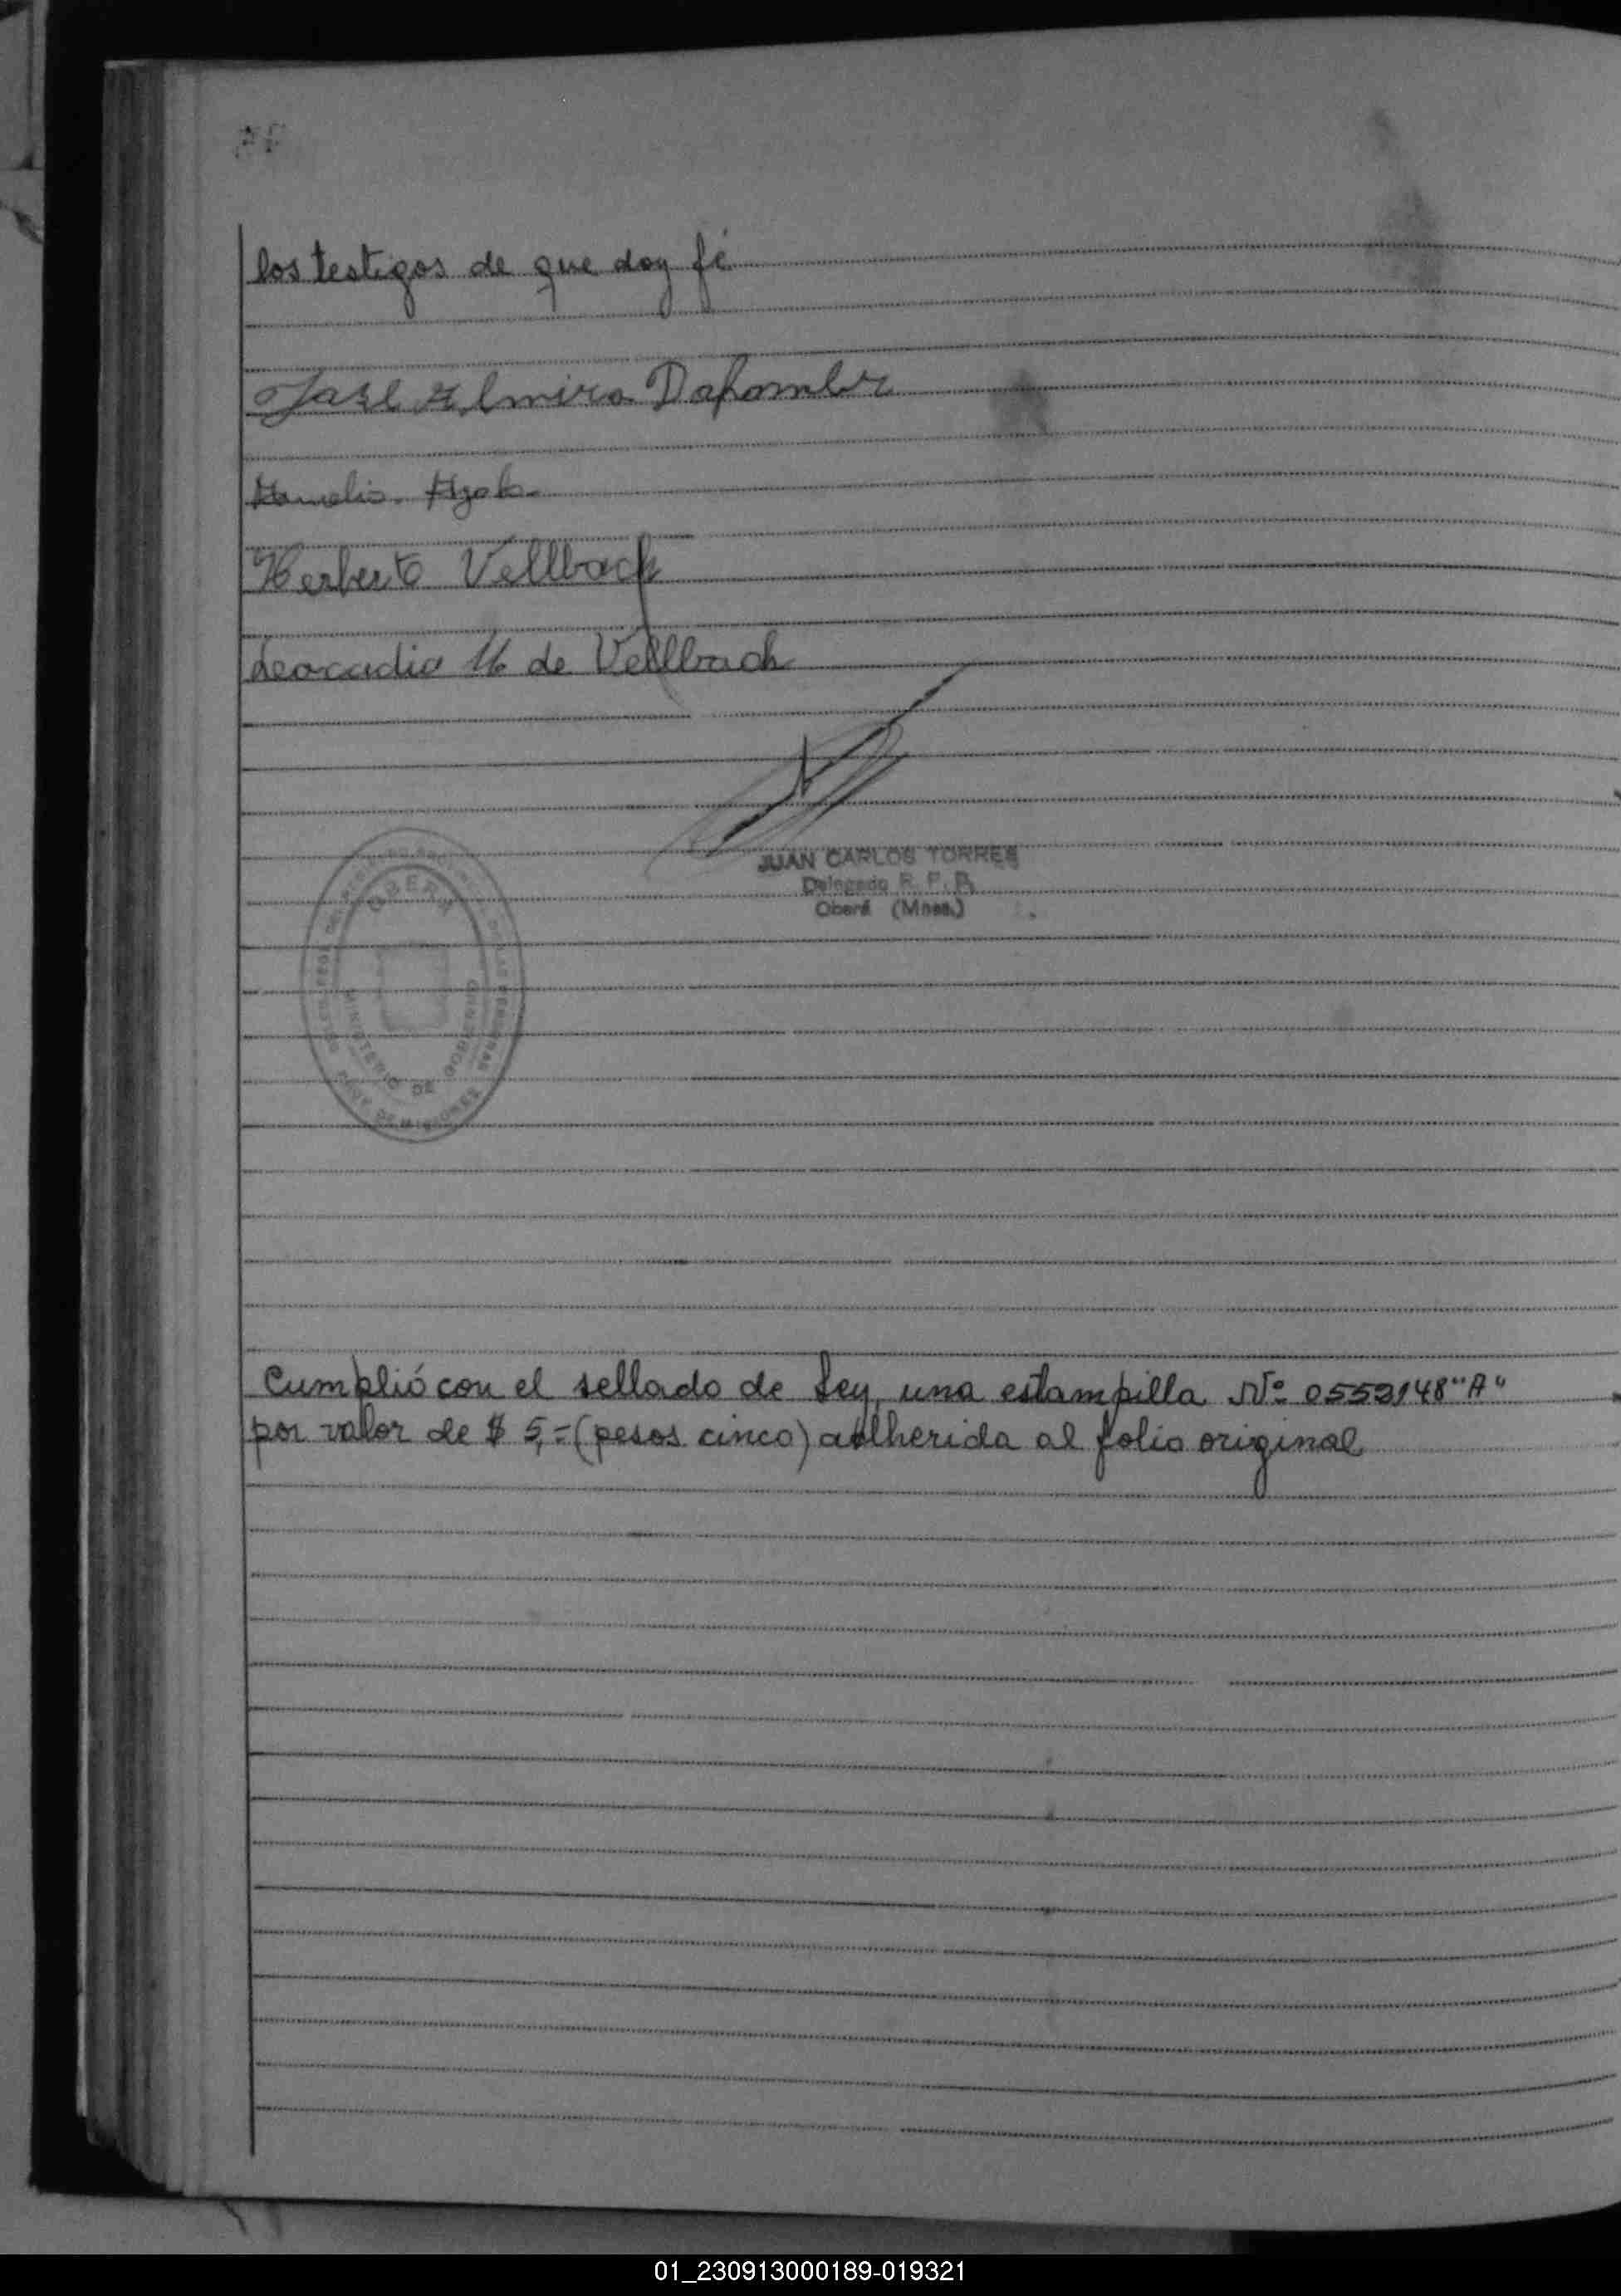 los testigos de que doy fé
José Elmiro Dahombr
Herberto Vellbach
Leocadia M de Vellbach
JUAN CARLOS TORRES
Delegado R. P. P.
Oberá (Mnes.)
OBERA
MINISTERIO DE GOBIERNO
PROV. DE MISIONES
Cumplió con el sellado de Ley, una estampilla Nº 0553148 "A"
por valor de $ 5,= (pesos cinco) adherida al folio original
01_230913000189-019321